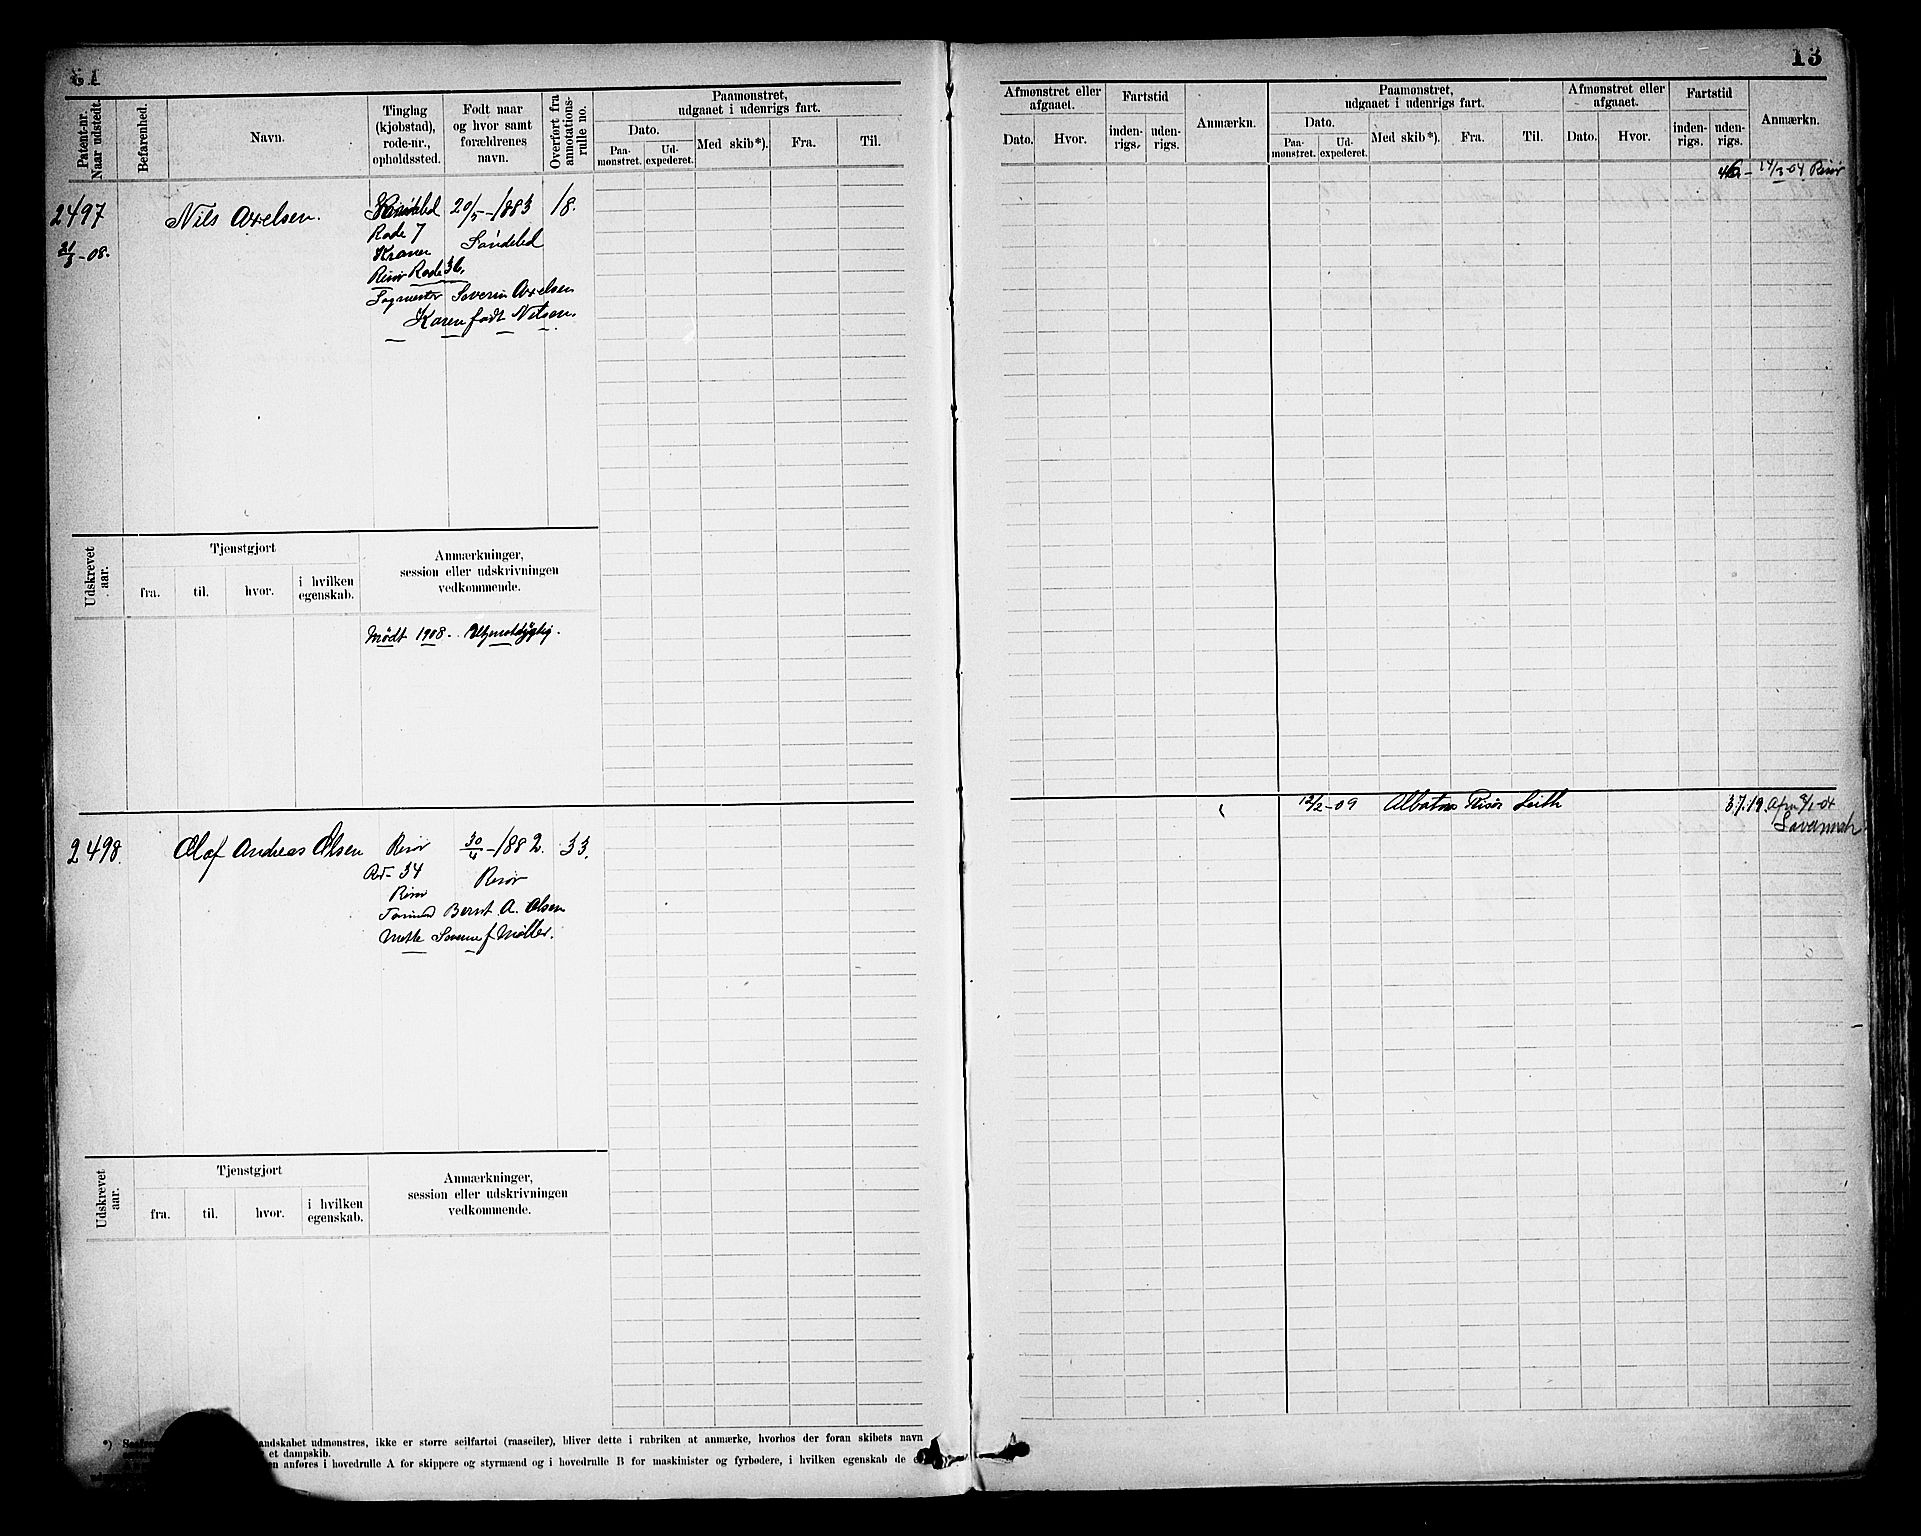 13
Patent-nr. Naar udstedt.
Befarenhed.
Navn.
Tinglag (kjøbstad), rode-nr., opholdssted.
Født naar og hvor samt forældrenes navn.
Overført fra annotationsrulle no.
Paamønstret, udgaaet i udenrigs fart.
Dato.
Paamønstret.
Udexpederet.
Med skib*).
Fra.
Til.
Afmønstret eller afgaaet.
Dato.
Hvor.
Fartstid
indenrigs.
udenrigs.
Anmærkn.
Paamønstret, udgaaet i udenrigs fart.
Dato.
Paamønstret.
Udexpederet.
Med skib*).
Fra.
Til.
Afmønstret eller afgaaet.
Dato.
Hvor.
Fartstid
indenrigs.
udenrigs.
Anmærkn.
2497
Nils Axelsen.
20/5-1883
18.
Rode 7
Søndeled
Risør Rode 36,
Severin Axelsen
Karen født Nilsen.
-08.
14/3-04 Risør
Udskrevet aar.
Tjenstgjort
fra.
til.
hvor.
i hvilken egenskab.
Anmærkninger, session eller udskrivningen vedkommende.
Mødt 1908.
2498.
Olaf Andreas Olsen
Risør
30/4-1882.
33.
34
Risør
Risør
Bernt A. Olsen
Mette f Møller.
12/2-09
Albatros Risør Leith
37.19.
Savannah
Udskrevet aar.
Tjenstgjort
fra.
til.
hvor.
i hvilken egenskab.
Anmærkninger, session eller udskrivningen vedkommende.
andskabet udmønstres, ikke er større seilfartøi (raaseiler), bliver dette i rubriken at anmærke, hvorhos der foran skibets navn
et dampskib.
anføres i hovedrulle A for skippere og styrmænd og i hovedrulle B for maskinister og fyrbødere, i hvilken egenskab de